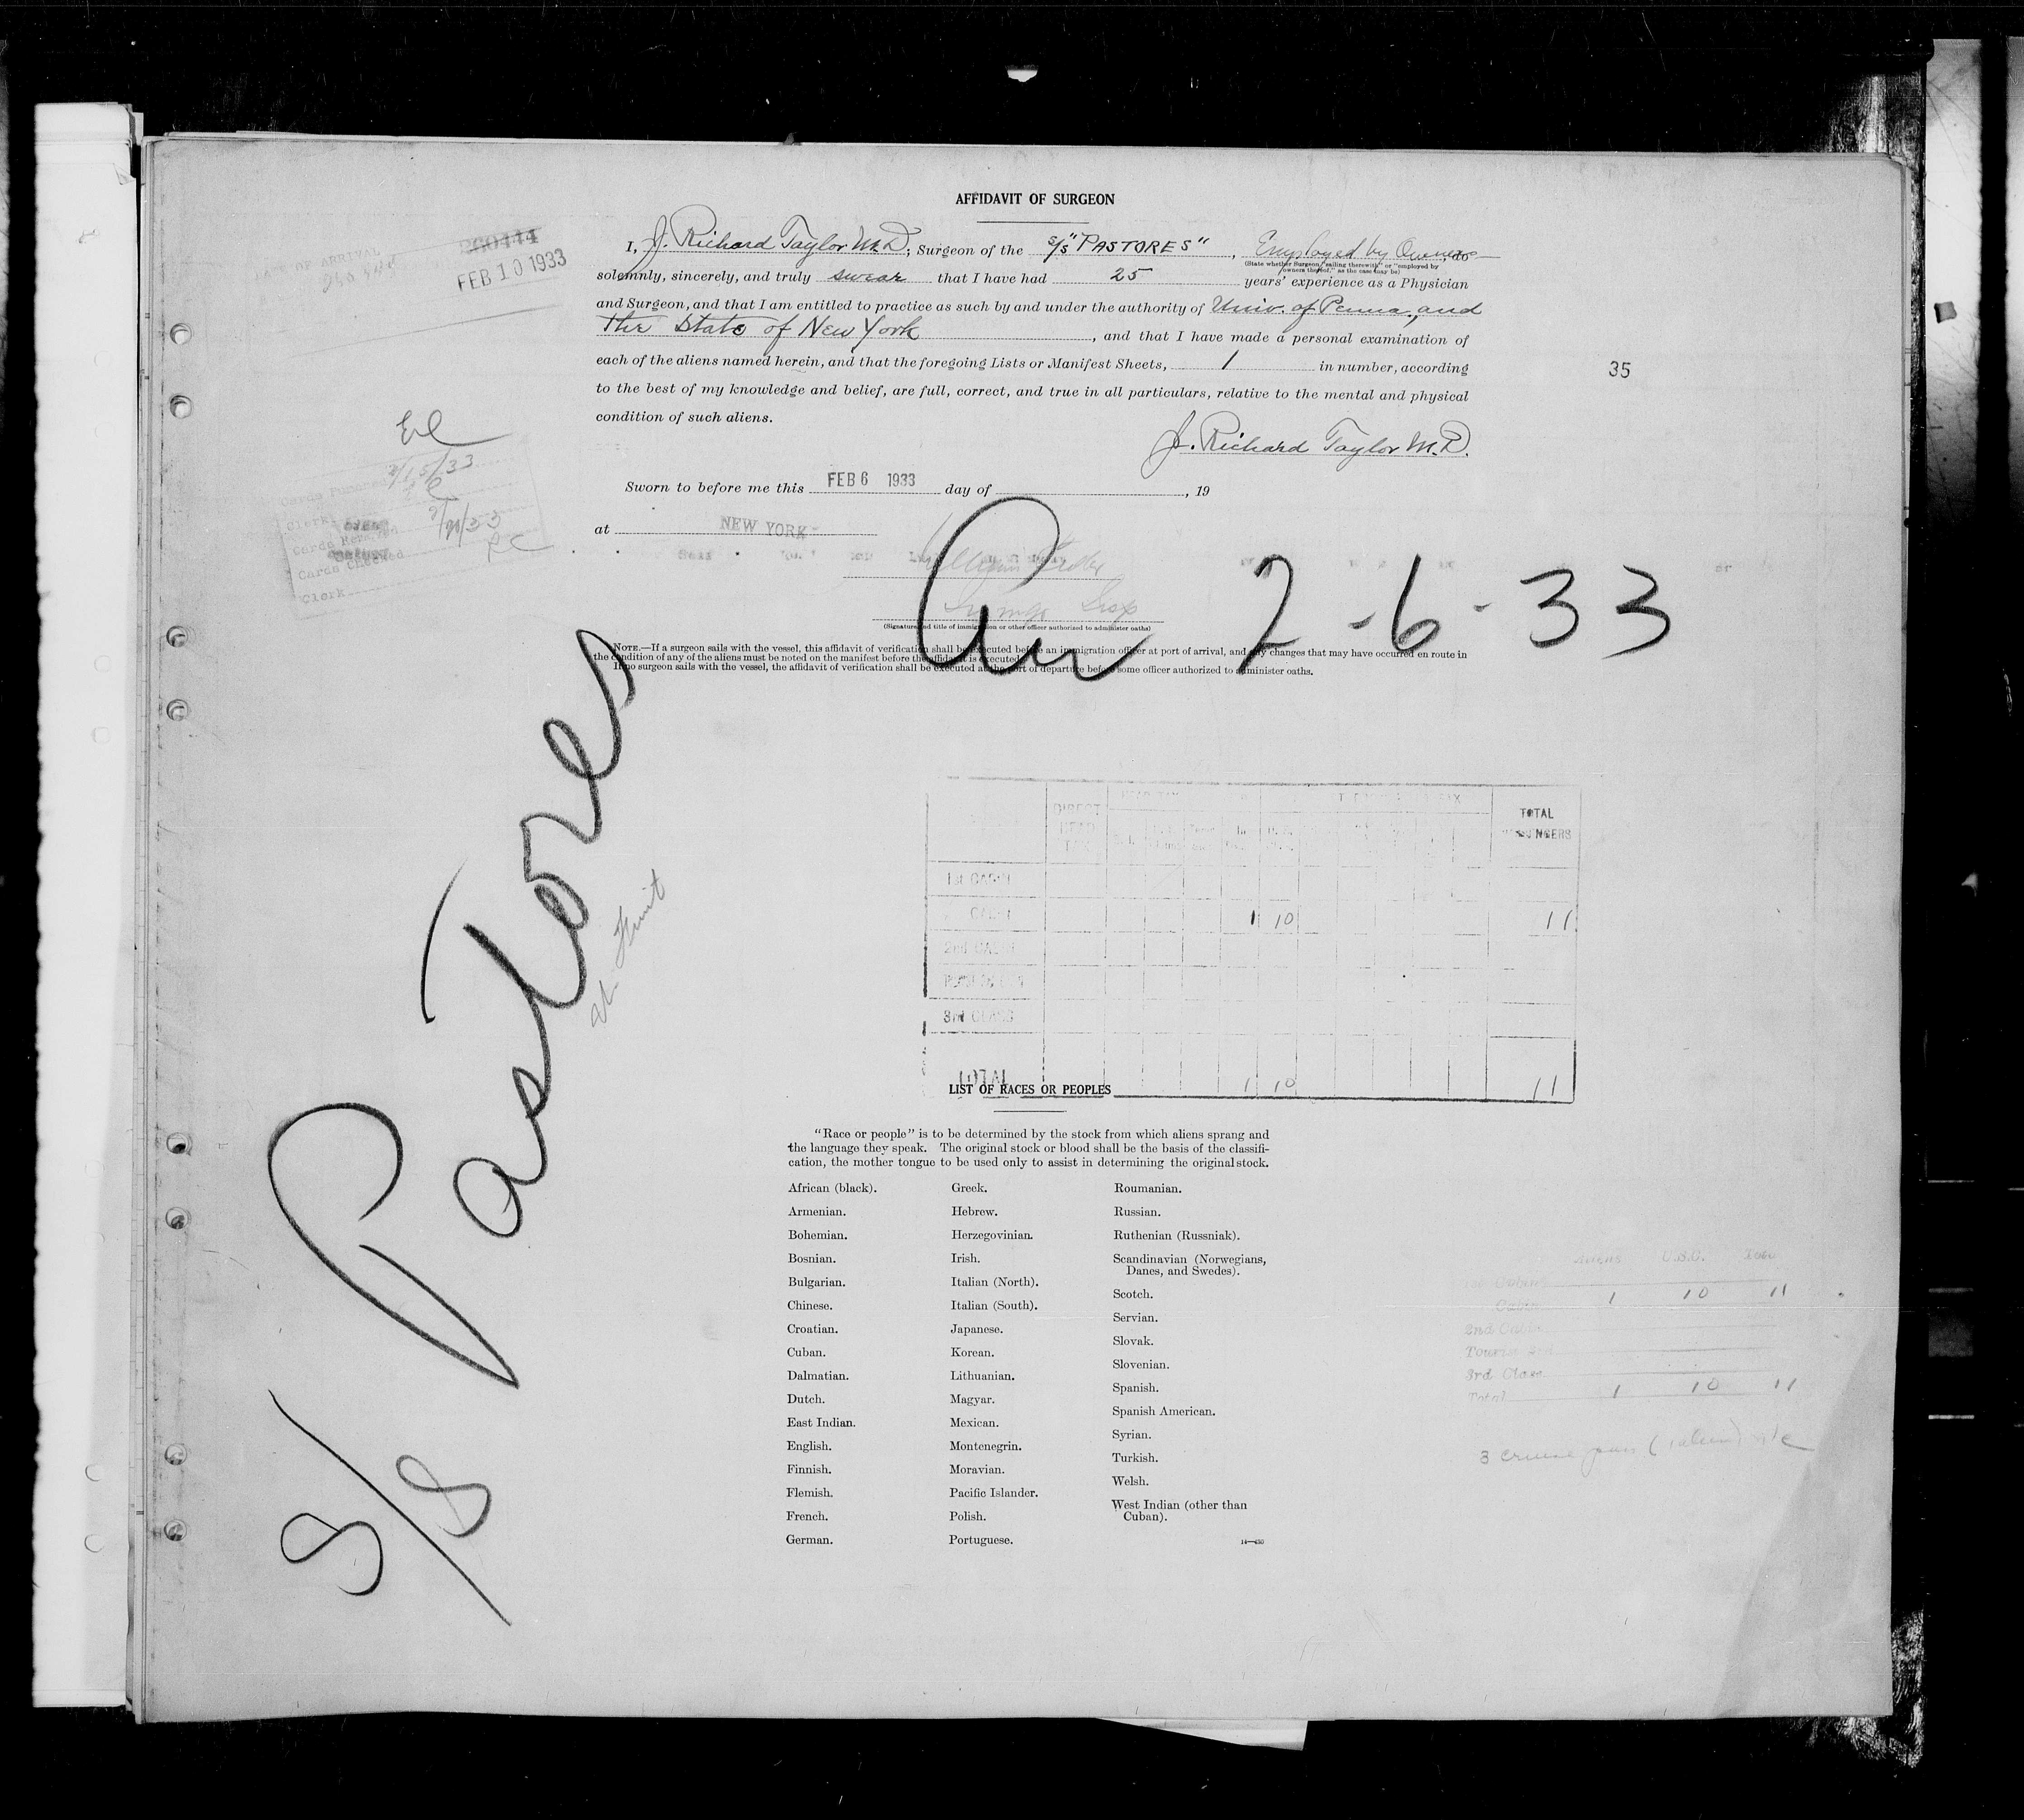 AFFIDAVIT OF SURGEON
I, J. Richard Taylor M.D., Surgeon of the S/S "PASTORES", Employed by Owners, do
(State whether Surgeon "sailing therewith" or "employed by owners thereof," as the case may be)
solemnly, sincerely, and truly swear that I have had 25 years' experience as a Physician
and Surgeon, and that I am entitled to practice as such by and under the authority of Univ. of Penna., and
the State of New York, and that I have made a personal examination of
each of the aliens named herein, and that the foregoing Lists or Manifest Sheets, 1 in number, according
to the best of my knowledge and belief, are full, correct, and true in all particulars, relative to the mental and physical
condition of such aliens.
J. Richard Taylor M.D.
Sworn to before me this FEB 6 1933 day of , 19
at NEW YORK
(Signature and title of immigration or other officer authorized to administer oaths)
NOTE.—If a surgeon sails with the vessel, this affidavit of verification shall be executed before an immigration officer at port of arrival, and any changes that may have occurred en route in
the condition of any of the aliens must be noted on the manifest before the affidavit is executed.
If no surgeon sails with the vessel, the affidavit of verification shall be executed at the port of departure before some officer authorized to administer oaths.
OF ARRIVAL
FEB 10 1933
35
2/15/33
Clerk
Cards Checked
Clerk
Arr 2-6-33
S/S Pastores
Fruit
DIRECT HEAD TAX
TOTAL
1st CABIN
CABIN 1 10 11
2nd CABIN
3rd CLASS
TOTAL 1 10 11
LIST OF RACES OR PEOPLES
"Race or people" is to be determined by the stock from which aliens sprang and
the language they speak. The original stock or blood shall be the basis of the classifi-
cation, the mother tongue to be used only to assist in determining the original stock.
African (black).
Armenian.
Bohemian.
Bosnian.
Bulgarian.
Chinese.
Croatian.
Cuban.
Dalmatian.
Dutch.
East Indian.
English.
Finnish.
Flemish.
French.
German.
Greek.
Hebrew.
Herzegovinian.
Irish.
Italian (North).
Italian (South).
Japanese.
Korean.
Lithuanian.
Magyar.
Mexican.
Montenegrin.
Moravian.
Pacific Islander.
Polish.
Portuguese.
Roumanian.
Russian.
Ruthenian (Russniak).
Scandinavian (Norwegians,
Danes, and Swedes).
Scotch.
Servian.
Slovak.
Slovenian.
Spanish.
Spanish American.
Syrian.
Turkish.
Welsh.
West Indian (other than
Cuban).
Aliens U.S.C.
1st Cabin
Cabin 1 10 11
2nd Cabin
3rd Class
Total 1 10 11
3 cruise